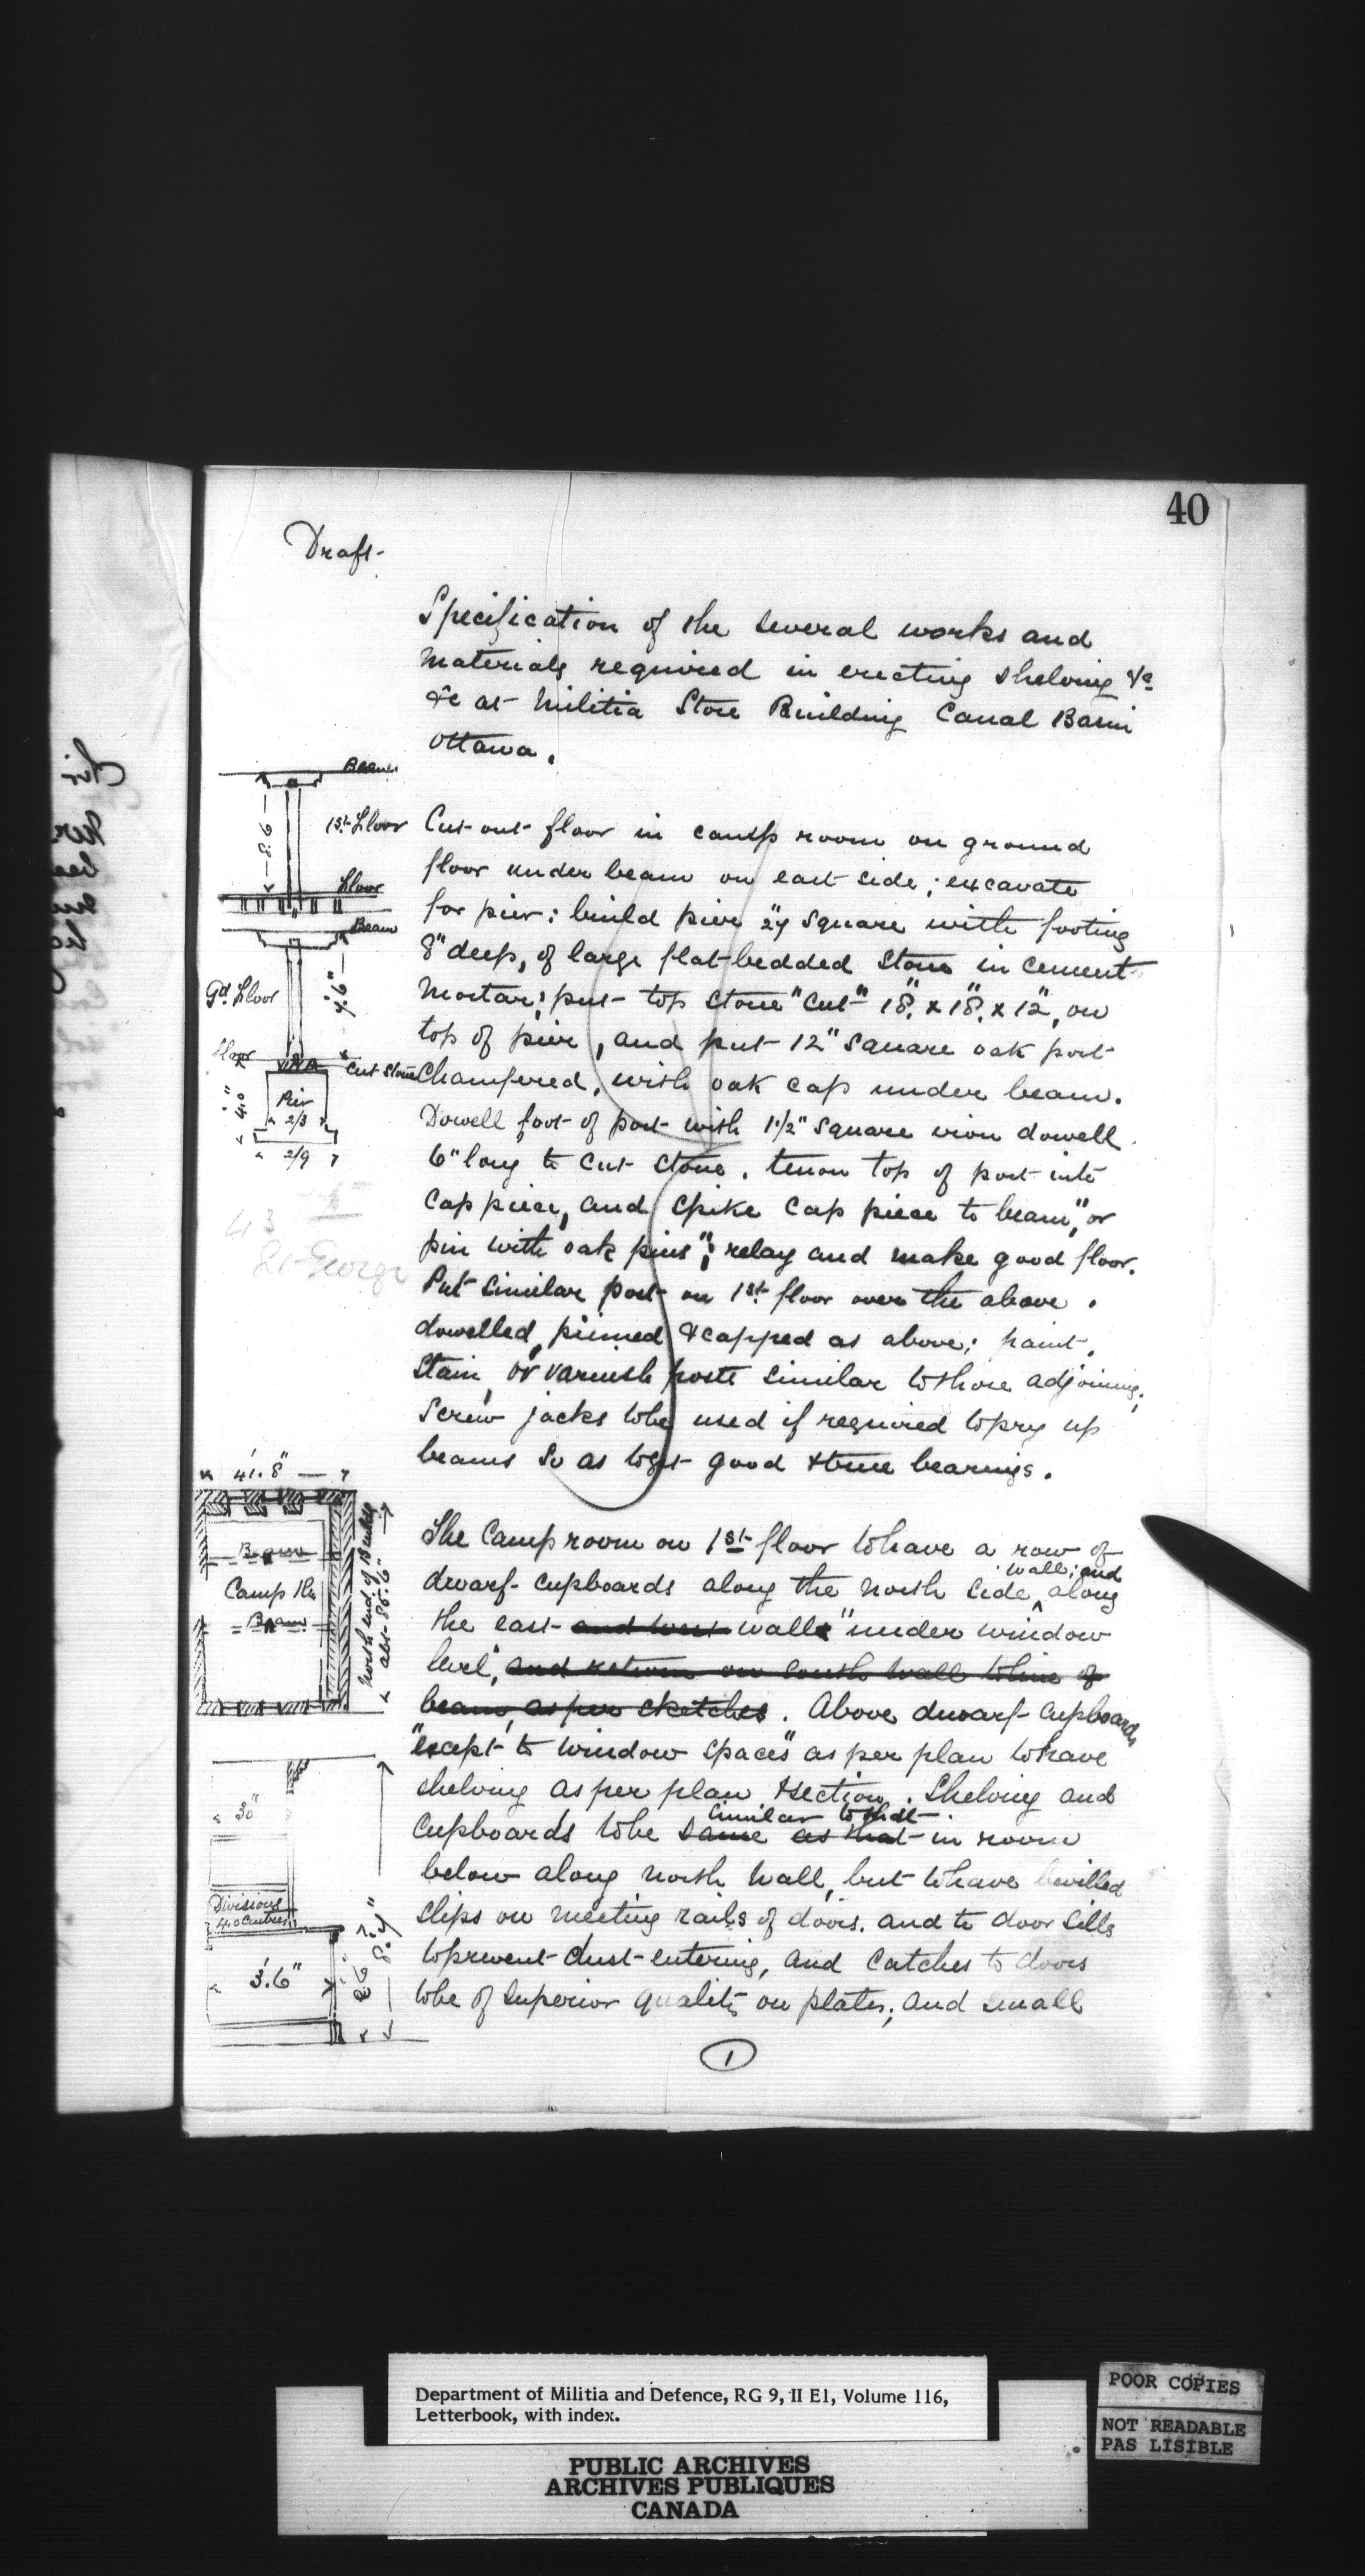 40
Draft-
Specification of the several works and
materials required in erecting shelving &c
&c at Militia Store Building Canal Basin
Ottawa.
Beam
1st Floor
9'.8"
Floor
Beam
Gd Floor
9'.6"
Floor
Cut Stone
Pier
4.0"
2/3
2/9
43
St-George
Cut out floor in camp room on ground
floor under beam on east side; excavate
for pier: build pier 27" square with footing
8" deep, of large flat-bedded stone in cement
mortar; put top stone "cut" 18" x 18" x 12", on
top of pier, and put 12" square oak post
Chamfered, with oak cap under beam.
Dowell foot of post with 1 1/2" square iron dowell
6" long to cut stone. tenon top of post into
cap piece, and spike cap piece to beam," or
pin with oak pins"; relay and make good floor.
Put similar post on 1st floor over the above.
dowelled, pinned & capped as above; paint,
stain, or varnish posts similar to those adjoining;
Screw jacks to be used if required to pry up
beams so as to get good & true bearings.
41'.8"
Beam
Camp Rm
Beam
North end of Building
abt 86'.6"
The Camp room on 1st floor to have a row of
dwarf cupboards along the north side wall; and along
the east and west walls "under window
level", and return on south wall to line of
beam, as per sketches. Above dwarf cupboards
"except to window spaces" as per plan to have
shelving as per plan & section. Shelving and
similar to that
Cupboards to be same as that in room
below along north wall, but to have bevilled
slips on meeting rails of doors. and to door sills
to prevent dust entering, and catches to doors
to be of superior quality on plates; and small
30"
Divisions
4.0 Centres
3'.6"
8'.7"
1
Department of Militia and Defence, RG 9, II E1, Volume 116,
Letterbook, with index.
PUBLIC ARCHIVES
ARCHIVES PUBLIQUES
CANADA
POOR COPIES
NOT READABLE
PAS LISIBLE